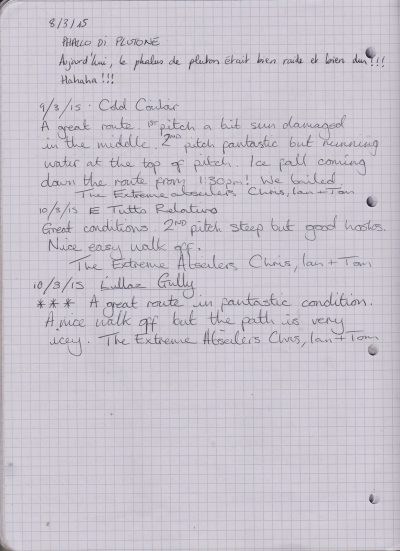 8/3/15
PHALLO DI PLUTONE
Aujourd'hui, le phalus de pluton était bien raide et bien dur!!!
Hahaha!!!
9/3/15. Cold Couloir
A great route. 1st pitch a bit sun damaged
in the middle. 2ND pitch fantastic but running
water at the top of pitch. Ice fall coming
down the route from 1:30pm! We bailed
The Extreme abseilers Chris, Ian + Tom
10/3/15 E Tutto Relativo
Great conditions. 2ND pitch steep but good hooks.
Nice easy walk off.
The Extreme Abseilers Chris, Ian + Tom
10/3/15 Lillaz Gully
*** A great route in fantastic condition.
A nice walk off but the path is very
icey. The Extreme Abseilers Chris, Ian + Tom